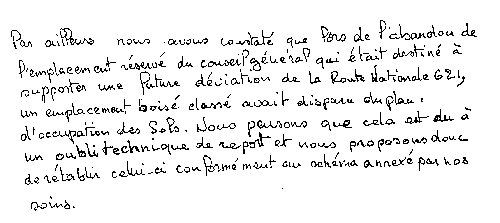 Par ailleurs nous avons constaté que lors de l'abandon de
l'emplacement réservé du conseil général qui était destiné à
supporter une future déviation de la Route Nationale 621,
un emplacement boisé classé avait disparu du plan
d'occupation des Sols. Nous pensons que cela est du à
un oubli technique de report et nous proposons donc
de rétablir celui-ci conformément au schéma annexé par nos
soins.